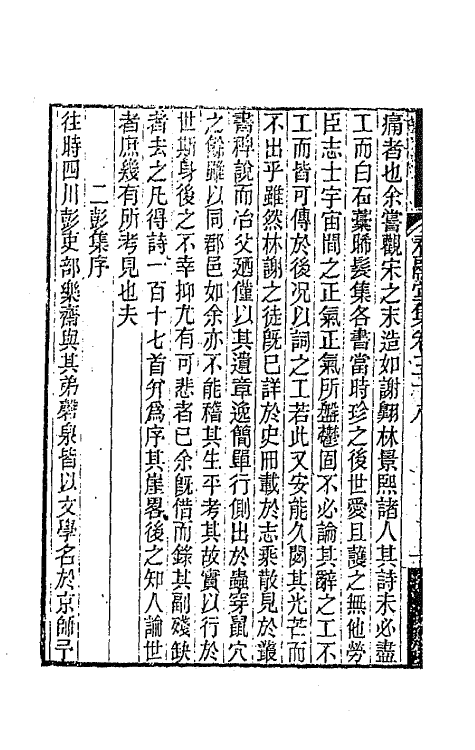 痛者也余嘗觀宋之末造如謝翺林景熙諸人其詩未必盡
工而白石藁晞髮集各書當時珍之後世愛且護之無他勞
臣志士宇宙間之正氣正氣所盤鬱固不必論其辭之工不
工而皆可傳於後况以詞之工若此又安能久閟其光芒而
不出乎雖然林謝之徒旣已詳於史冊載於志乘散見於叢
書稗說而冶父廼僅以其遺章逸簡單行側出於蟲穿鼠穴
之餘雖以同郡邑如余亦不能稽其生平考其故實以行於
世斯身後之不幸抑尤有可悲者已余旣借而錄其副殘缺
者去之凡得詩一百十七首分爲序其崖畧後之知人論世
者庶幾有所考見也夫
二彭集序
往時四川彭吏部樂齋與其弟磬泉皆以文學名於京師予